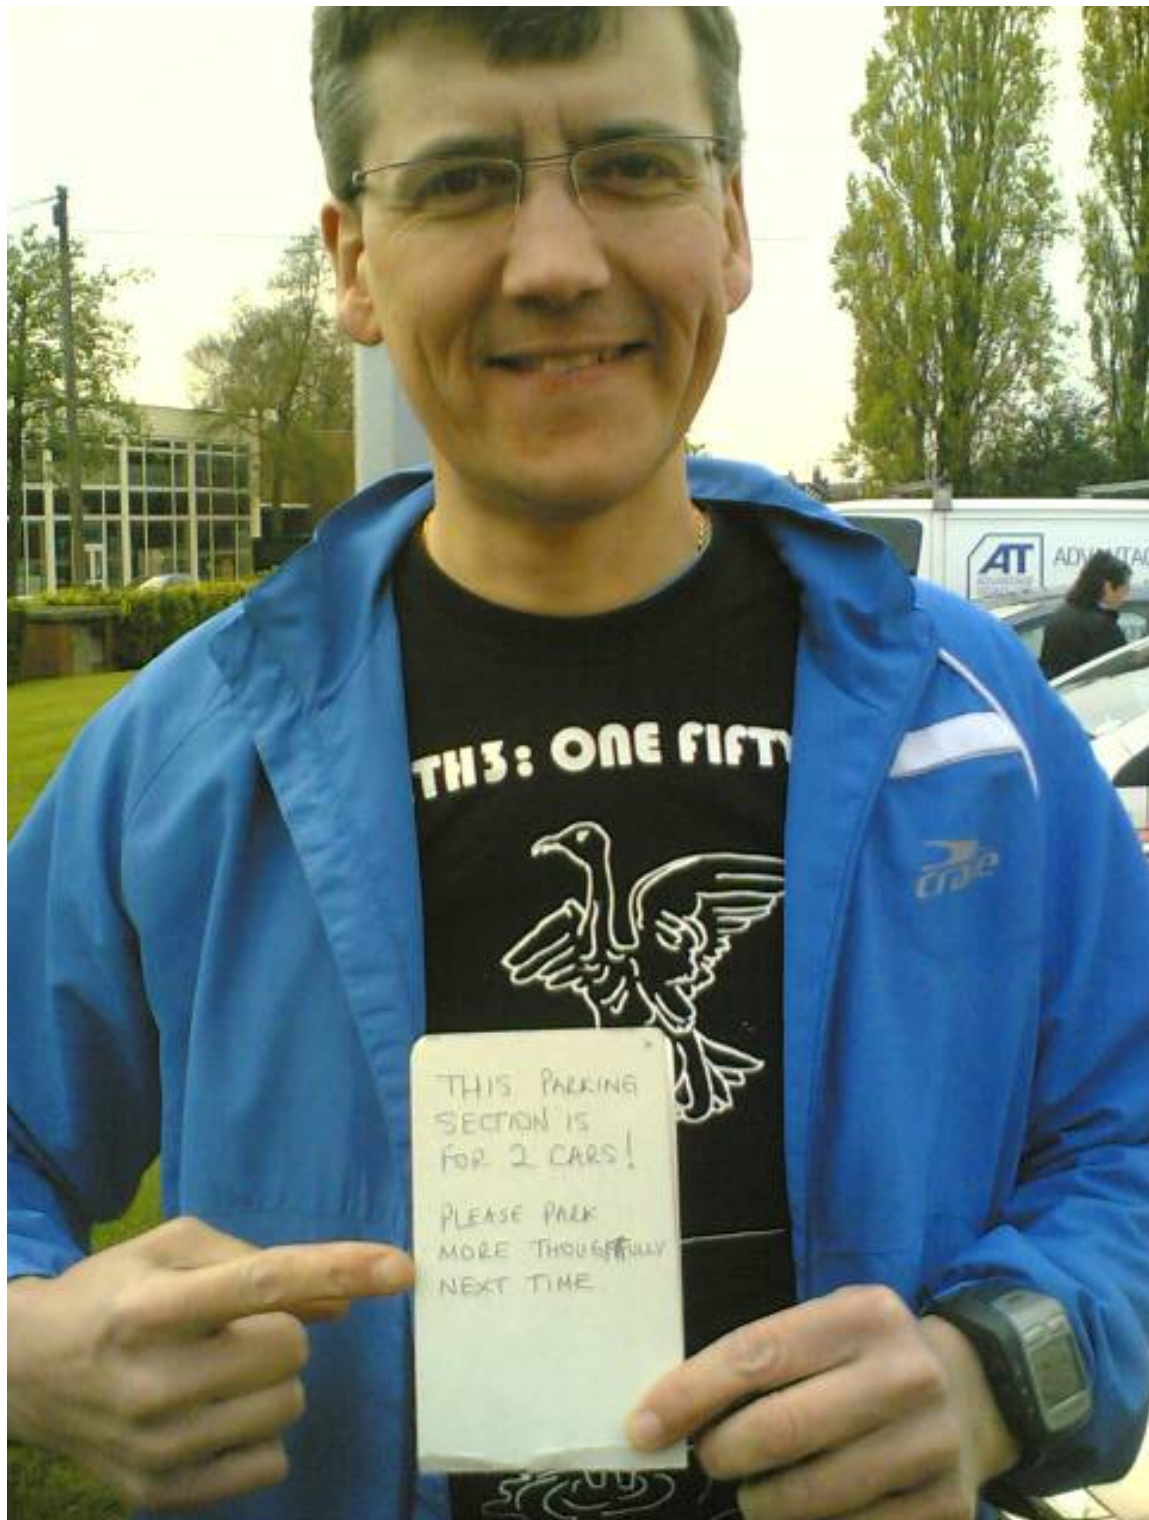 AT
TH3: ONE FIFTY
craft
THIS PARKING
SECTION IS
FOR 2 CARS!
PLEASE PARK
MORE THOUGHTFULLY
NEXT TIME